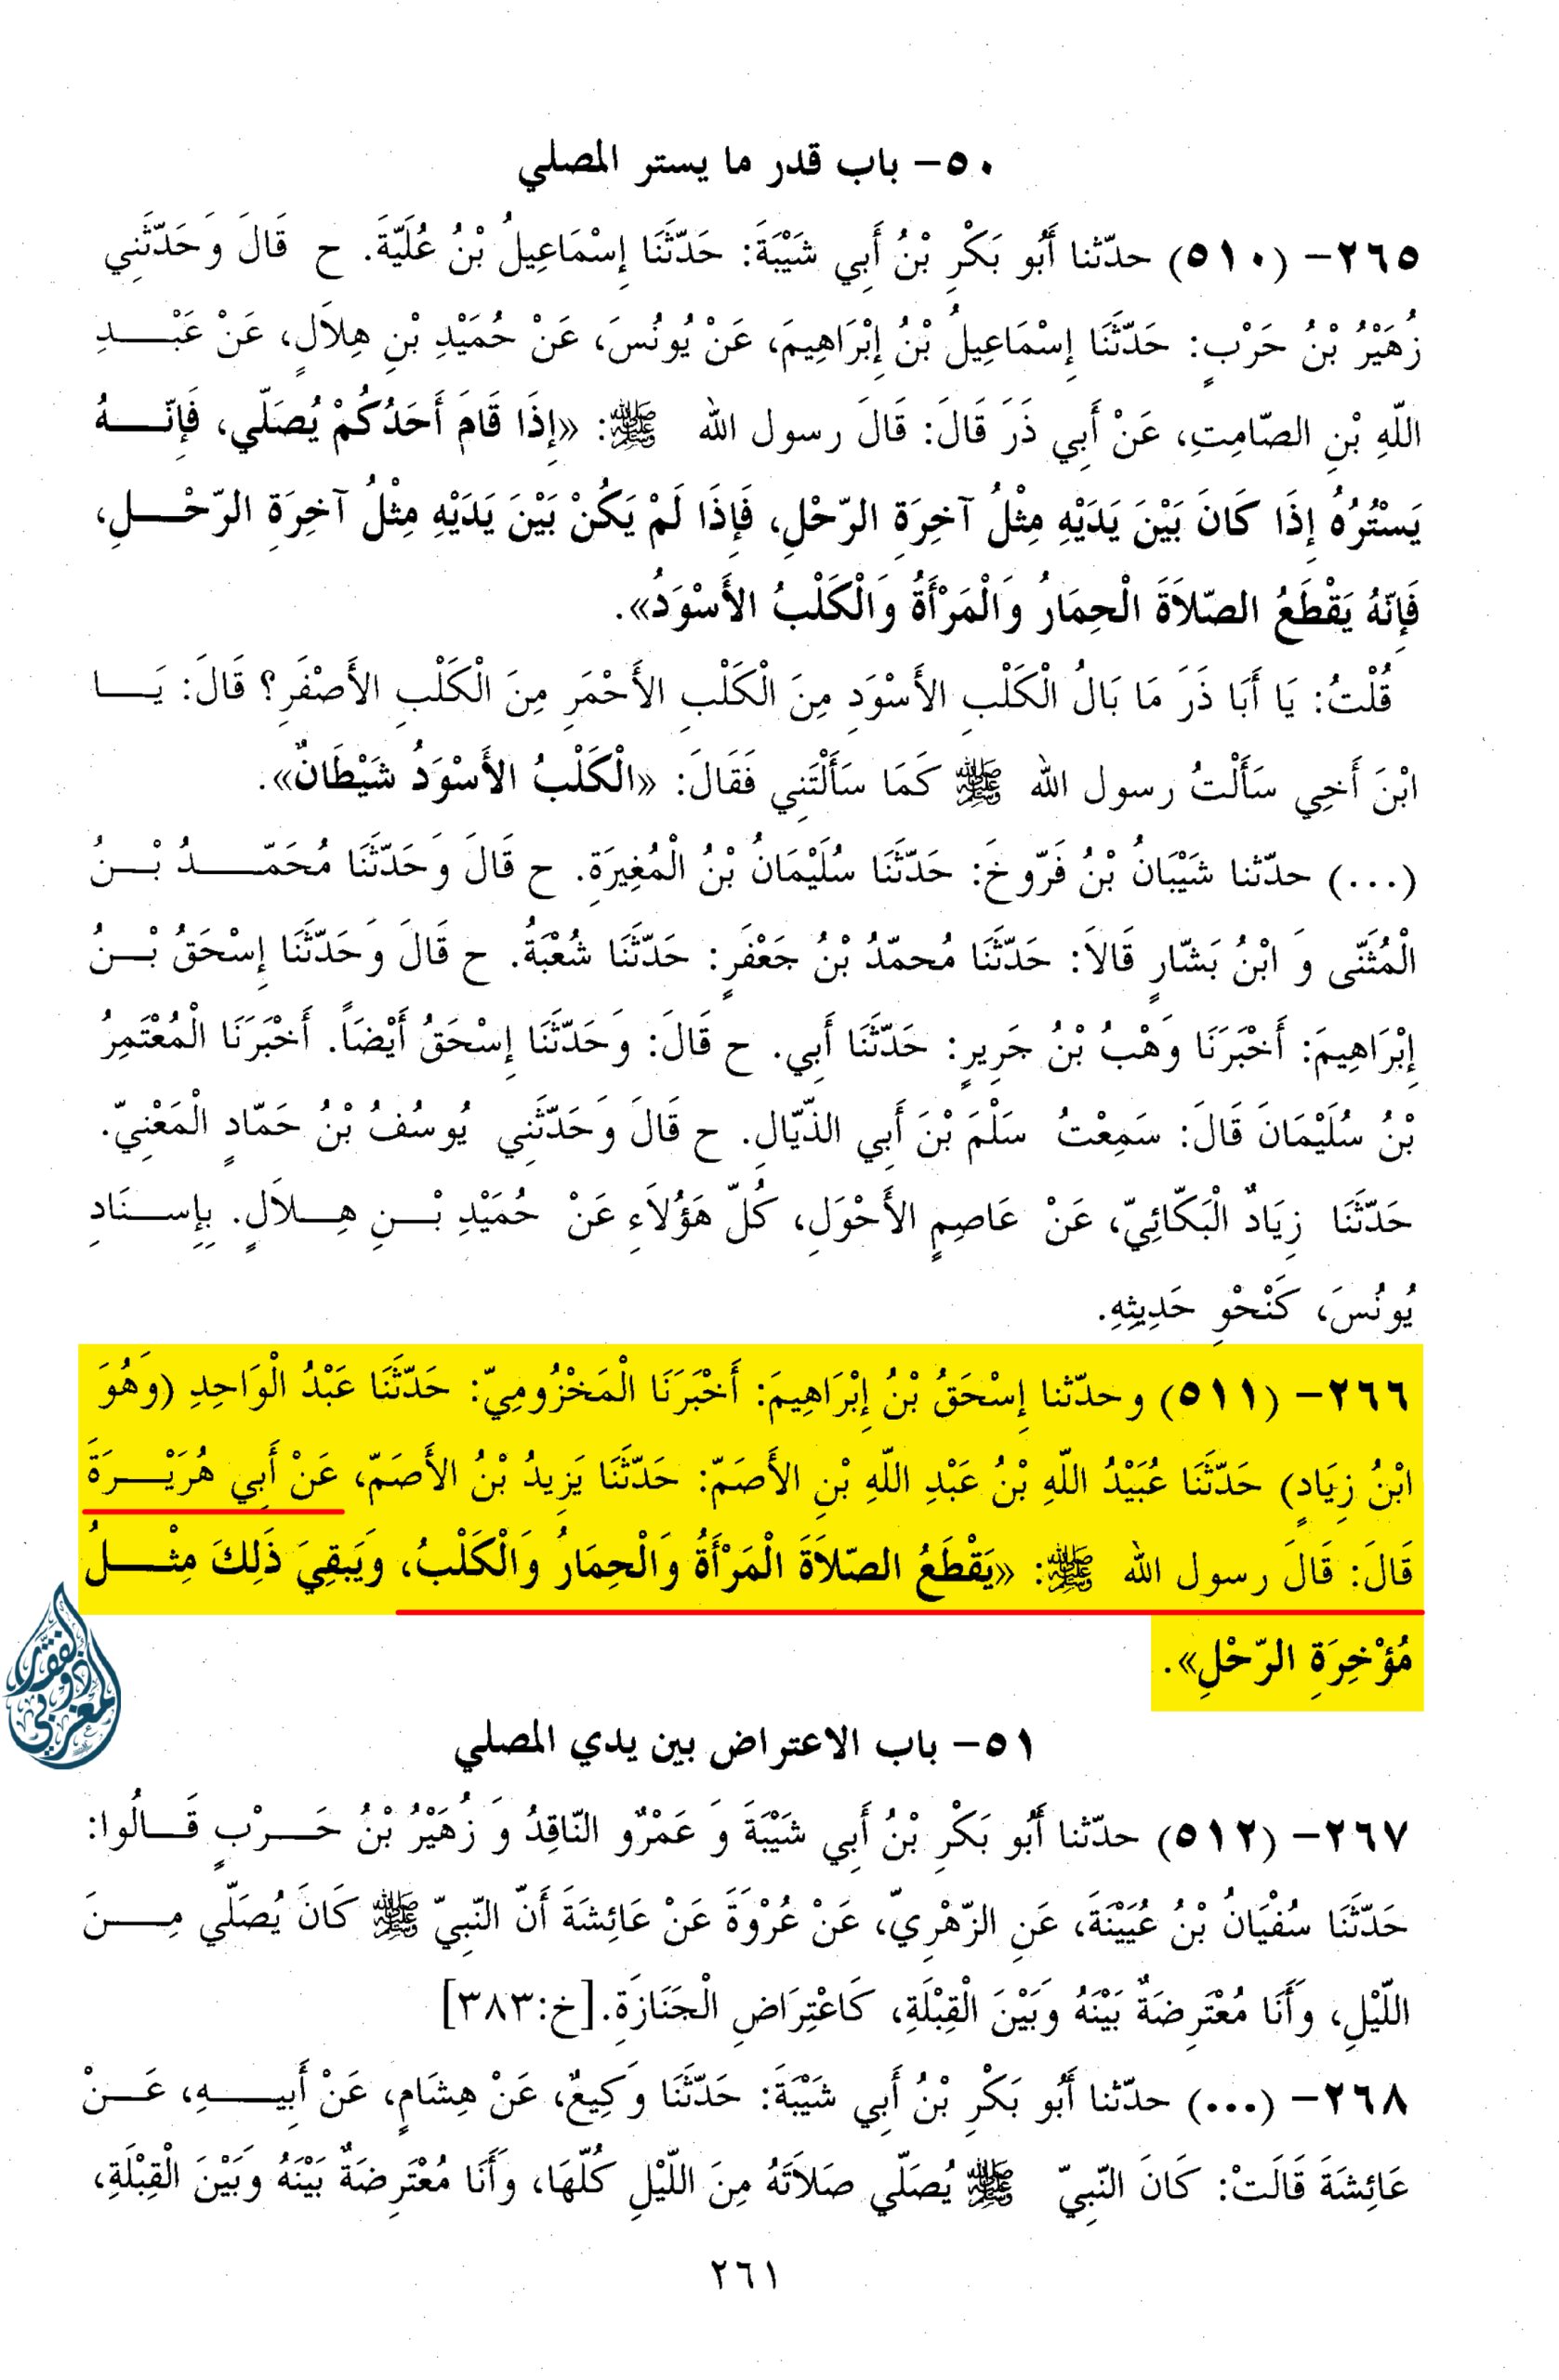 ٥٠- باب قدر ما يستر المصلي
٢٦٥- (٥١٠) حدّثنا أَبُو بَكْرِ بْنُ أَبِي شَيْبَةَ: حَدّثَنَا إِسْمَاعِيلُ بْنُ عُلَيّةَ. ح قَالَ وَحَدّثَنِي
زُهَيْرُ بْنُ حَرْبٍ: حَدّثَنَا إِسْمَاعِيلُ بْنُ إِبْرَاهِيمَ، عَنْ يُونُسَ، عَنْ حُمَيْدِ بْنِ هِلاَلٍ، عَنْ عَبْـــدِ
اللّهِ بْنِ الصّامِتِ، عَنْ أَبِي ذَرَ قَالَ: قَالَ رسول الله ﷺ: «إِذَا قَامَ أَحَدُكُمْ يُصَلّي، فَإِنّـــهُ
يَسْتُرُهُ إِذَا كَانَ بَيْنَ يَدَيْهِ مِثْلُ آخِرَةِ الرّحْلِ، فَإِذَا لَمْ يَكُنْ بَيْنَ يَدَيْهِ مِثْلُ آخِرَةِ الرّحْـــلِ،
فَإِنّهُ يَقْطَعُ الصّلاَةَ الْحِمَارُ وَالْمَرْأَةُ وَالْكَلْبُ الأَسْوَدُ».
قُلْتُ: يَا أَبَا ذَرَ مَا بَالُ الْكَلْبِ الأَسْوَدِ مِنَ الْكَلْبِ الأَحْمَرِ مِنَ الْكَلْبِ الأَصْفَرِ؟ قَالَ: يَـــا
ابْنَ أَخِي سَأَلْتُ رسول الله ﷺ كَمَا سَأَلْتَنِي فَقَالَ: «الْكَلْبُ الأَسْوَدُ شَيْطَانٌ».
(...) حدّثنا شَيْبَانُ بْنُ فَرّوخَ: حَدّثَنَا سُلَيْمَانُ بْنُ الْمُغِيرَةِ. ح قَالَ وَحَدّثَنَا مُحَمّـــدُ بْـــنُ
الْمُثَنّى وَ ابْنُ بَشّارٍ قَالاَ: حَدّثَنَا مُحمّدُ بْنُ جَعْفَرٍ: حَدّثَنَا شُعْبَةُ. ح قَالَ وَحَدّثَنَا إِسْحَقُ بْـــنُ
إِبْرَاهِيمَ: أَخْبَرَنَا وَهْبُ بْنُ جَرِيرٍ: حَدّثَنَا أَبِي. ح قَالَ: وَحَدّثَنَا إِسْحَقُ أَيْضَاً. أَخْبَرَنَا الْمُعْتَمِرُ
بْنُ سُلَيْمَانَ قَالَ: سَمِعْتُ سَلْمَ بْنَ أَبِي الذّيّالِ. ح قَالَ وَحَدّثَنِي يُوسُفُ بْنُ حَمّادٍ الْمَعْنِيّ.
حَدّثَنَا زِيَادٌ الْبَكّائِيّ، عَنْ عَاصِمٍ الأَحْوَلِ، كُلّ هَؤُلاَءِ عَنْ حُمَيْدِ بْـــنِ هِـــلاَلٍ. بِإِســـنَادِ
يُونُسَ، كَنْحْوِ حَدِيثِهِ.
٢٦٦- (٥١١) وحدّثنا إِسْحَقُ بْنُ إِبْرَاهِيمَ: أَخْبَرَنَا الْمَخْزُومِيّ: حَدّثَنَا عَبْدُ الْوَاحِدِ (وَهُوَ
ابْنُ زِيَادٍ) حَدّثَنَا عُبَيْدُ اللّهِ بْنُ عَبْدِ اللّهِ بْنِ الأَصَمّ: حَدّثَنَا يَزِيدُ بْنُ الأَصَمّ، عَنْ أَبِي هُرَيْـــرَةَ
قَالَ: قَالَ رسول الله ﷺ: «يَقْطَعُ الصّلاَةَ الْمَرْأَةُ وَالْحِمَارُ وَالْكَلْبُ، وَيَبقِيَ ذَلِكَ مِثْـــلُ
مُؤْخِرَةِ الرّحْلِ».
٥١- باب الاعتراض بين يدي المصلي
٢٦٧- (٥١٢) حدّثنا أَبُو بَكْرِ بْنُ أَبِي شَيْبَةَ وَ عَمْرٌو النّاقِدُ وَ زُهَيْرُ بْنُ حَـــرْبٍ قَـــالُوا:
حَدّثَنَا سُفْيَانُ بْنُ عُيَيْنَةَ، عَنِ الزّهْرِيّ، عَنْ عُرْوَةَ عَنْ عَائِشَةَ أَنّ النّبِيّ ﷺ كَانَ يُصَلّي مِـــنَ
اللّيْلِ، وَأَنَا مُعْتَرِضَةٌ بَيْنَهُ وَبَيْنَ الْقِبْلَةِ، كَاعْتِرَاضِ الْجَنَازَةِ.[خ:٣٨٣]
٢٦٨- (...) حدّثنا أَبُو بَكْرِ بْنُ أَبِي شَيْبَةَ: حَدّثَنَا وَكِيعٌ، عَنْ هِشَامٍ، عَنْ أَبِيـــهِ، عَـــنْ
عَائِشَةَ قَالَتْ: كَانَ النّبِيّ ﷺ يُصَلّي صَلاَتَهُ مِنَ اللّيْلِ كُلّهَا، وَأَنَا مُعْتَرِضَةٌ بَيْنَهُ وَبَيْنَ الْقِبْلَةِ،
٢٦١